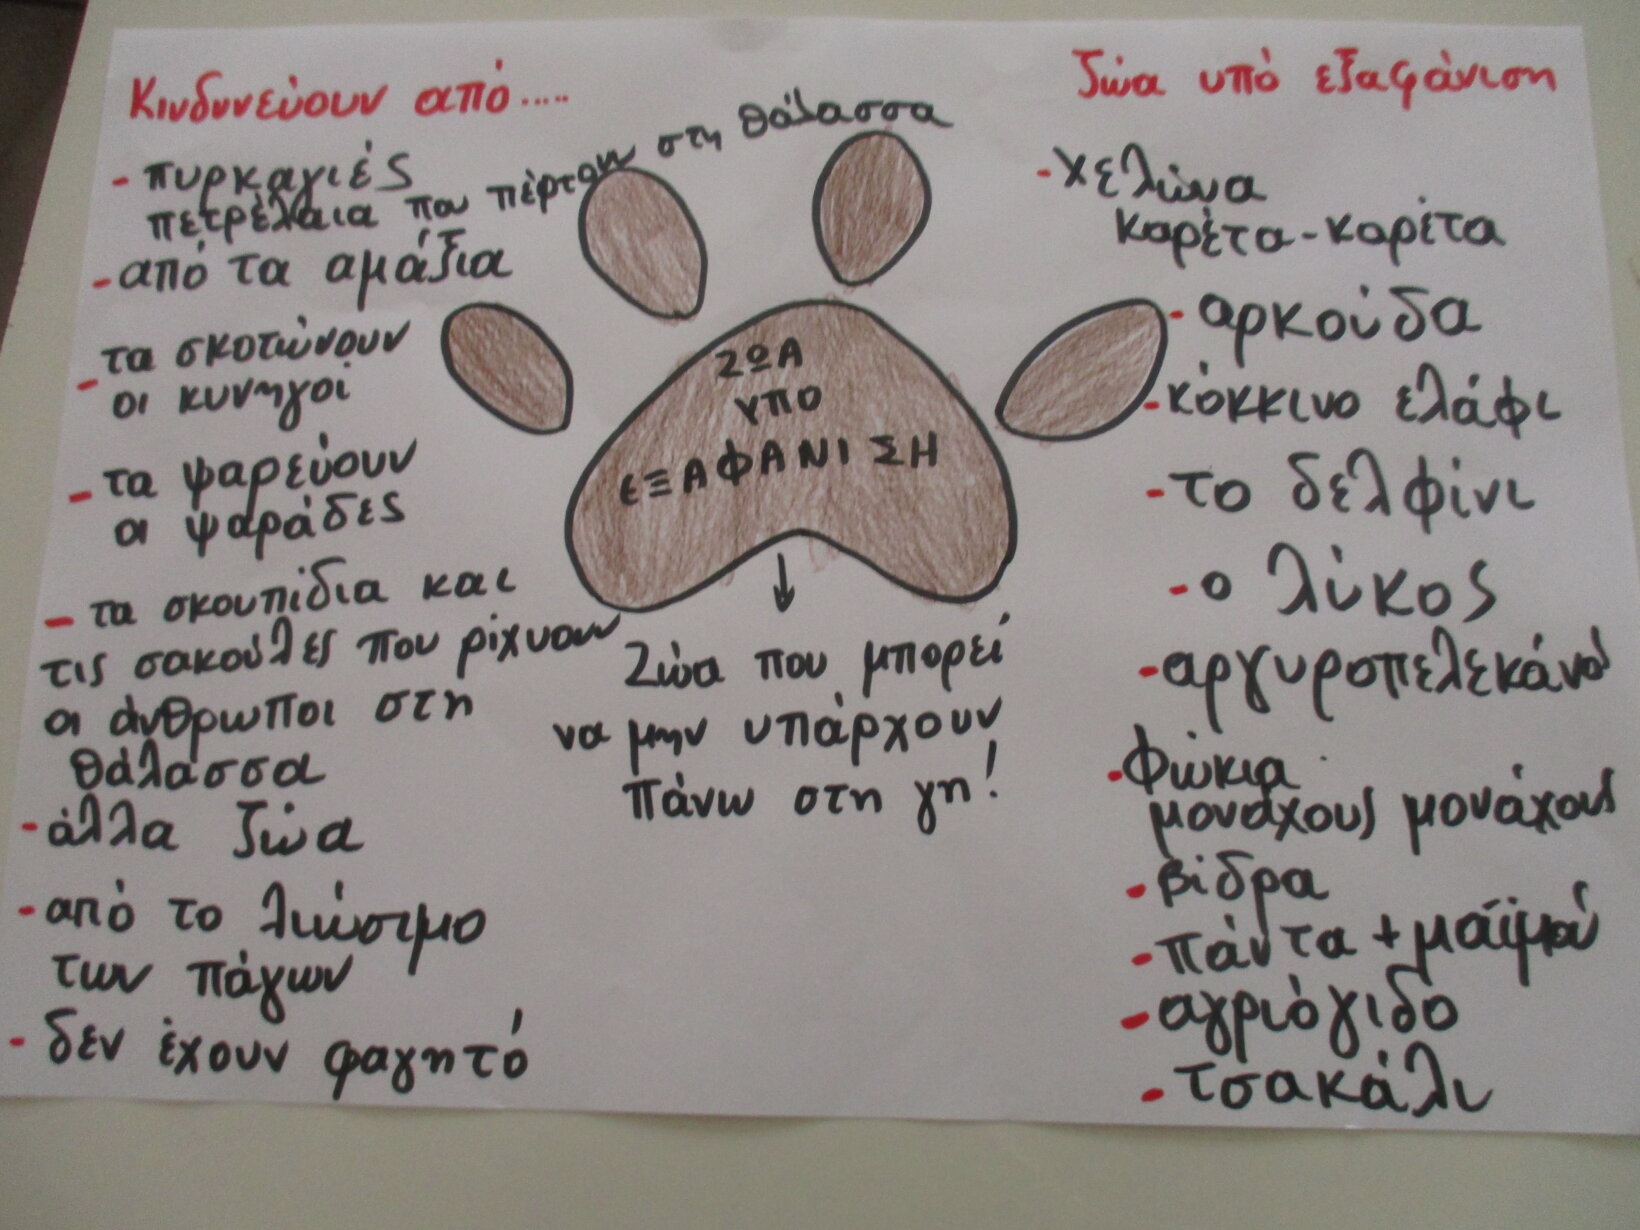 Κινδυνεύουν από.....
- πυρκαγιές
πετρέλαια που πέφτουν στη θάλασσα
- από τα αμάξια
- τα σκοτώνουν
οι κυνηγοί
- τα ψαρεύουν
οι ψαράδες
- τα σκουπίδια και
τις σακούλες που ρίχνουν
οι άνθρωποι στη
θάλασσα
- άλλα ζώα
- από το λιώσιμο
των πάγων
- δεν έχουν φαγητό
ΖΩΑ
ΥΠΟ
ΕΞΑΦΑΝΙΣΗ
Ζώα που μπορεί
να μην υπάρχουν
πάνω στη γη!
Ζώα υπό εξαφάνιση
- χελώνα
καρέτα-καρέτα
- αρκούδα
- κόκκινο ελάφι
- το δελφίνι
- ο λύκος
- αργυροπελεκάνος
- φώκια
μονάχους μονάχους
- βίδρα
- πάντα + μαϊμού
- αγριόγιδο
- τσακάλι